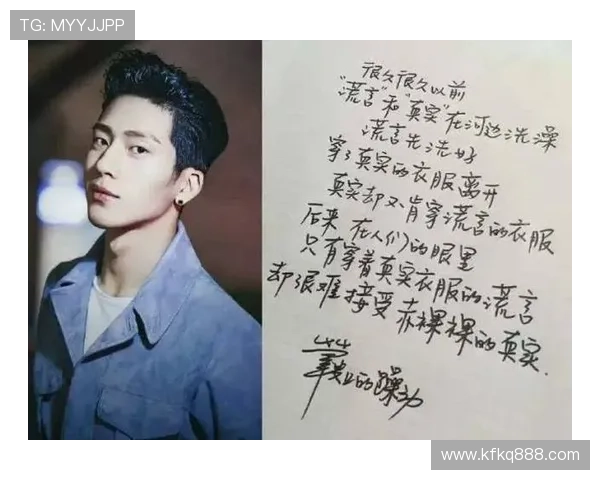 TG: MYYJJPP
很久很久以前
“谎言”和“真实”在河边洗澡
谎言先洗好
穿了真实的衣服离开
真实却不肯穿谎言的衣服
后来 在人们的眼里
只有穿着真实衣服的谎言
却很难接受赤裸裸的真实.
上的躁动
www.kfkq888.com